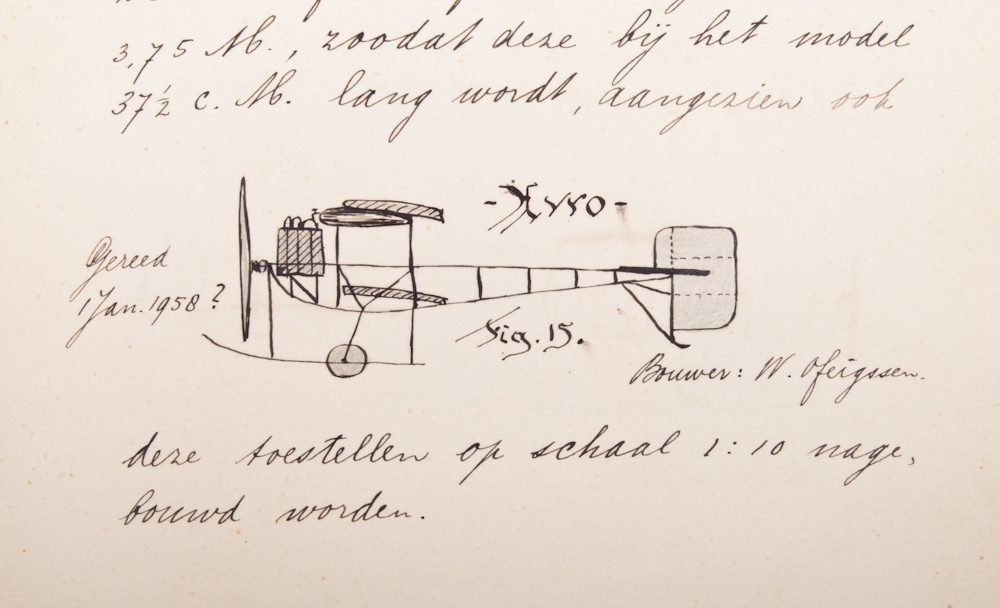 3,75 M., zoodat deze bij het model
37½ c. M. lang wordt, aangezien ook
-Avro-
Gereed
1 Jan. 1958?
Fig. 15.
Bouwer: W. Ofeigssen.
deze toestellen op schaal 1:10 nage,
bouwd worden.